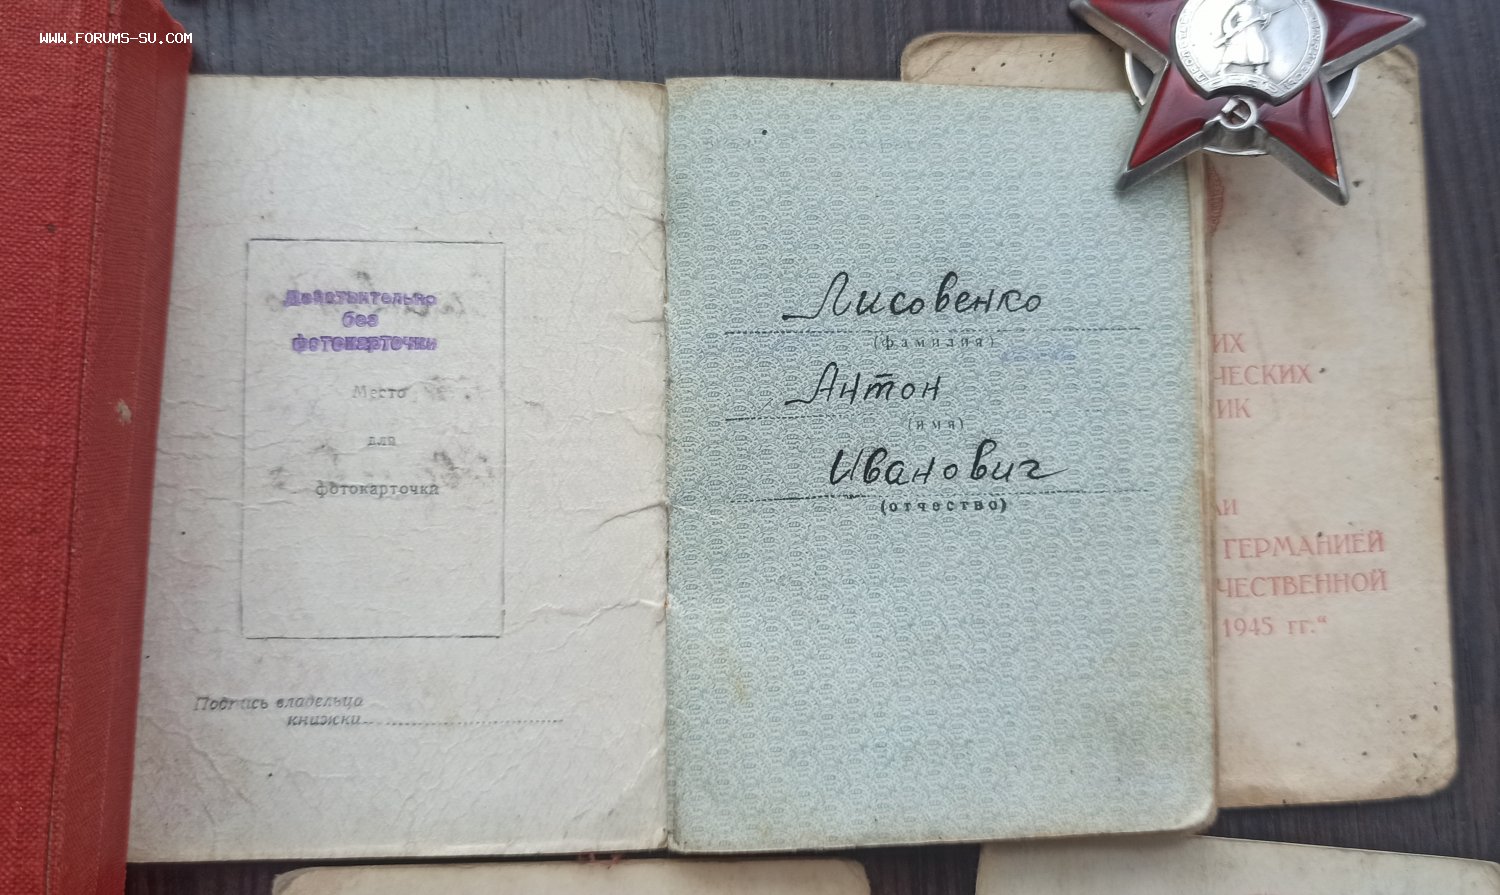 WWW.FORUMS-SU.COM
Действительно
без
фотокарточки
Место
для
фотокарточки
Подпись владельца
книжки
Лисовенко
(фамилия)
Антон
(имя)
Иванович
(отчество)
ИХ
ЧЕСКИХ
ИК
ЛИ
ГЕРМАНИЕЙ
ЧЕСТВЕННОЙ
1945 гг.“